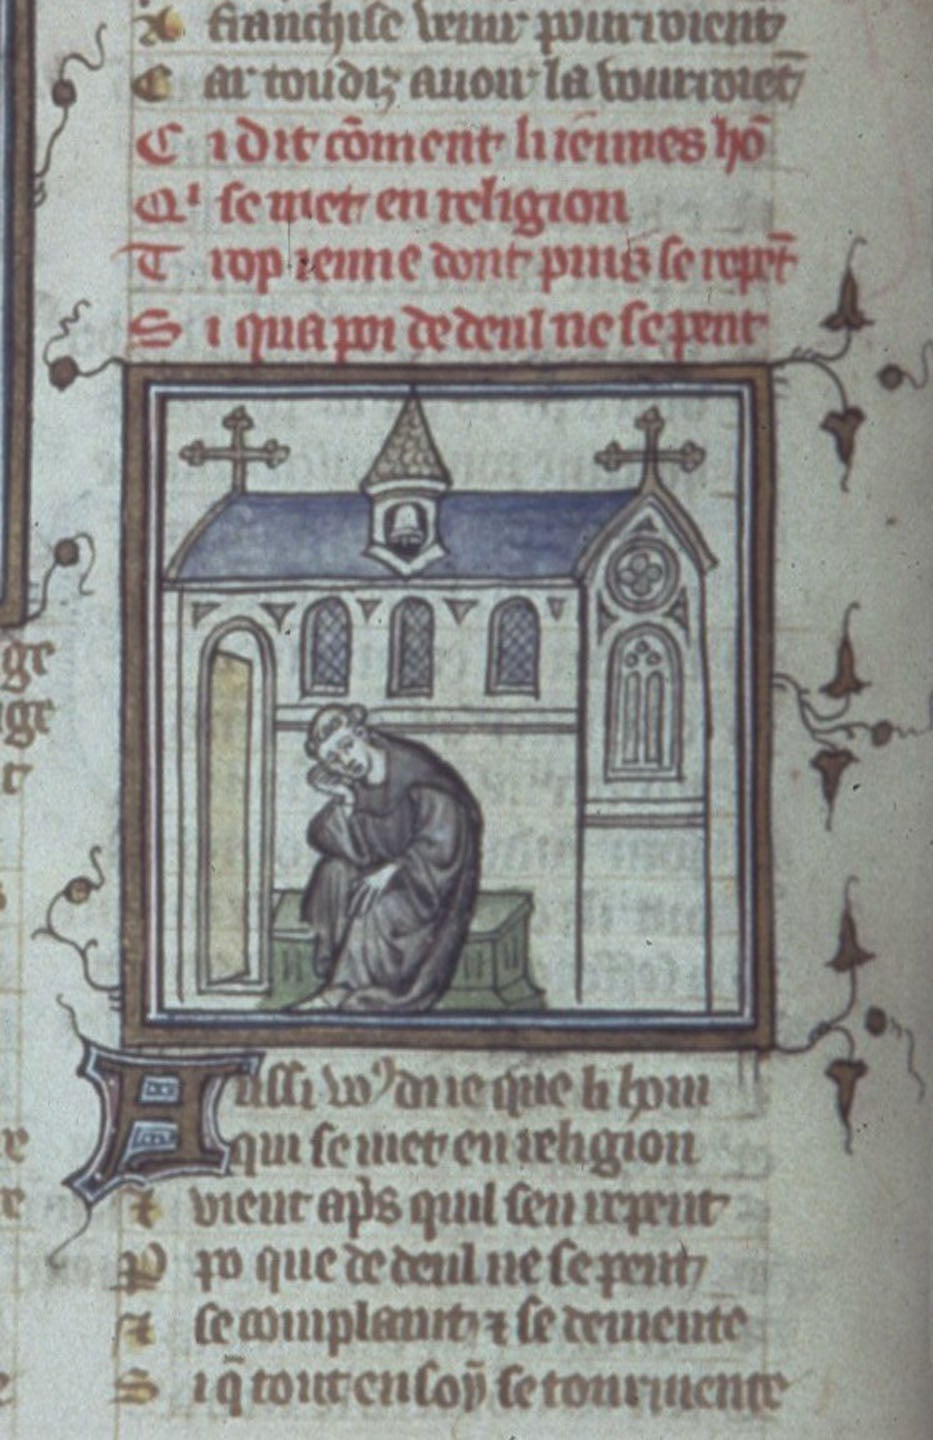 ge
ige
t
e
e
e
⁊ franchise venir pourroient
Car toudiz auoir la vourroiēt
Ci dit cōment li ieunes hō
Qi se met en religion
Trop ienne dont puis se repēt
Si qua poi de deul ne se pent
Aussi vo9 di ie que li hom
qui se met en religion
⁊ vient ap̄s quil sen repent
Po que de deul ne se pent
⁊ se complaint ⁊ se demente
Si q̄ tout en soy se tourmente